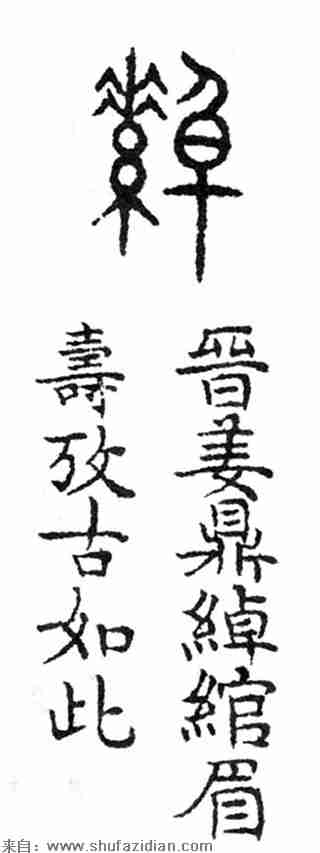 繛
晋姜鼎綽綰眉
壽攷古如此
来自：www.shufazidian.com